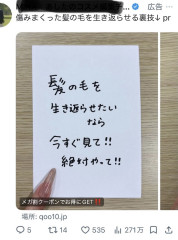 広告
傷みまくった髪の毛を生き返らせる裏技↓ pr
髪の毛を
生き返らせたい
なら
今すぐ見て!!
絶対やって!!
メガ割クーポンでお得にGET‼️
場所: qoo10.jp
5
14
535
271万